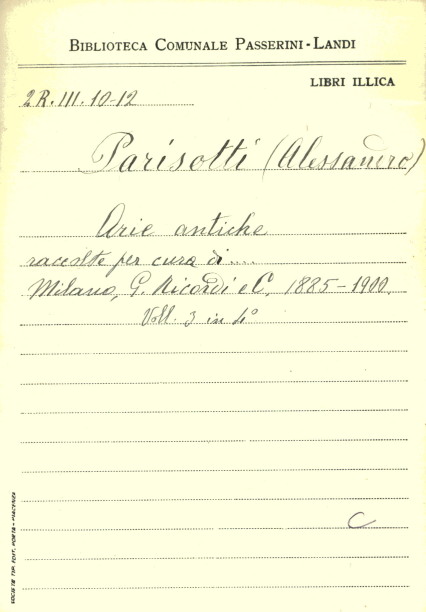 BIBLIOTECA COMUNALE PASSERINI-LANDI
LIBRI ILLICA
2R.III.10-12
Parisotti (Alessandro)
Arie antiche
raccolte per cura di....
Milano, G. Ricordi e C. 1885-1900.
Voll. 3 in 4°
C
SOCIETÀ TIP. EDIT. PORTA - PIACENZA